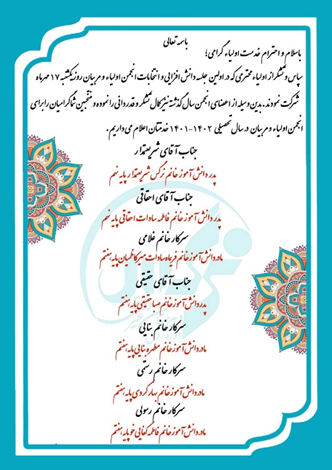 باسمه تعالی
باسلام و احترام خدمت اولیاء گرامی؛
سپاس و تشکر از اولیاء محترمی که در اولین جلسه دانش افزایی و انتخابات انجمن اولیاء و مربیان روز یکشبه ۱۷ مهرماه
شرکت نمودند، بدین وسیله از اعضای انجمن سال گذشته نیز کمال تشکر و قدردانی را نموده و منتخبین شما گرامیان را برای
انجمن اولیاء و مربیان در سال تحصیلی ۱۴۰۲-۱۴۰۱ خدمتتان اعلام می‌داریم.
جناب آقای شریعتمدار
پدر دانش آموز خانم نرگس شریعتمدار پایه نهم
جناب آقای احقاقی
پدر دانش آموز خانم فاطمه سادات احقاقی پایه نهم
سرکار خانم غلامی
مادر دانش آموز خانم فرجاه سادات میرکاظمیان پایه نهم
جناب آقای حقیقی
پدر دانش آموز خانم صبا حقیقی پایه هشتم
سرکار خانم بنایی
مادر دانش آموز خانم مطهره بنایی پایه هفتم
سرکار خانم رستمی
مادر دانش آموز خانم بهار کردی پایه هفتم
سرکار خانم رسولی
مادر دانش آموز خانم فاطمه کفایی خو پایه هفتم